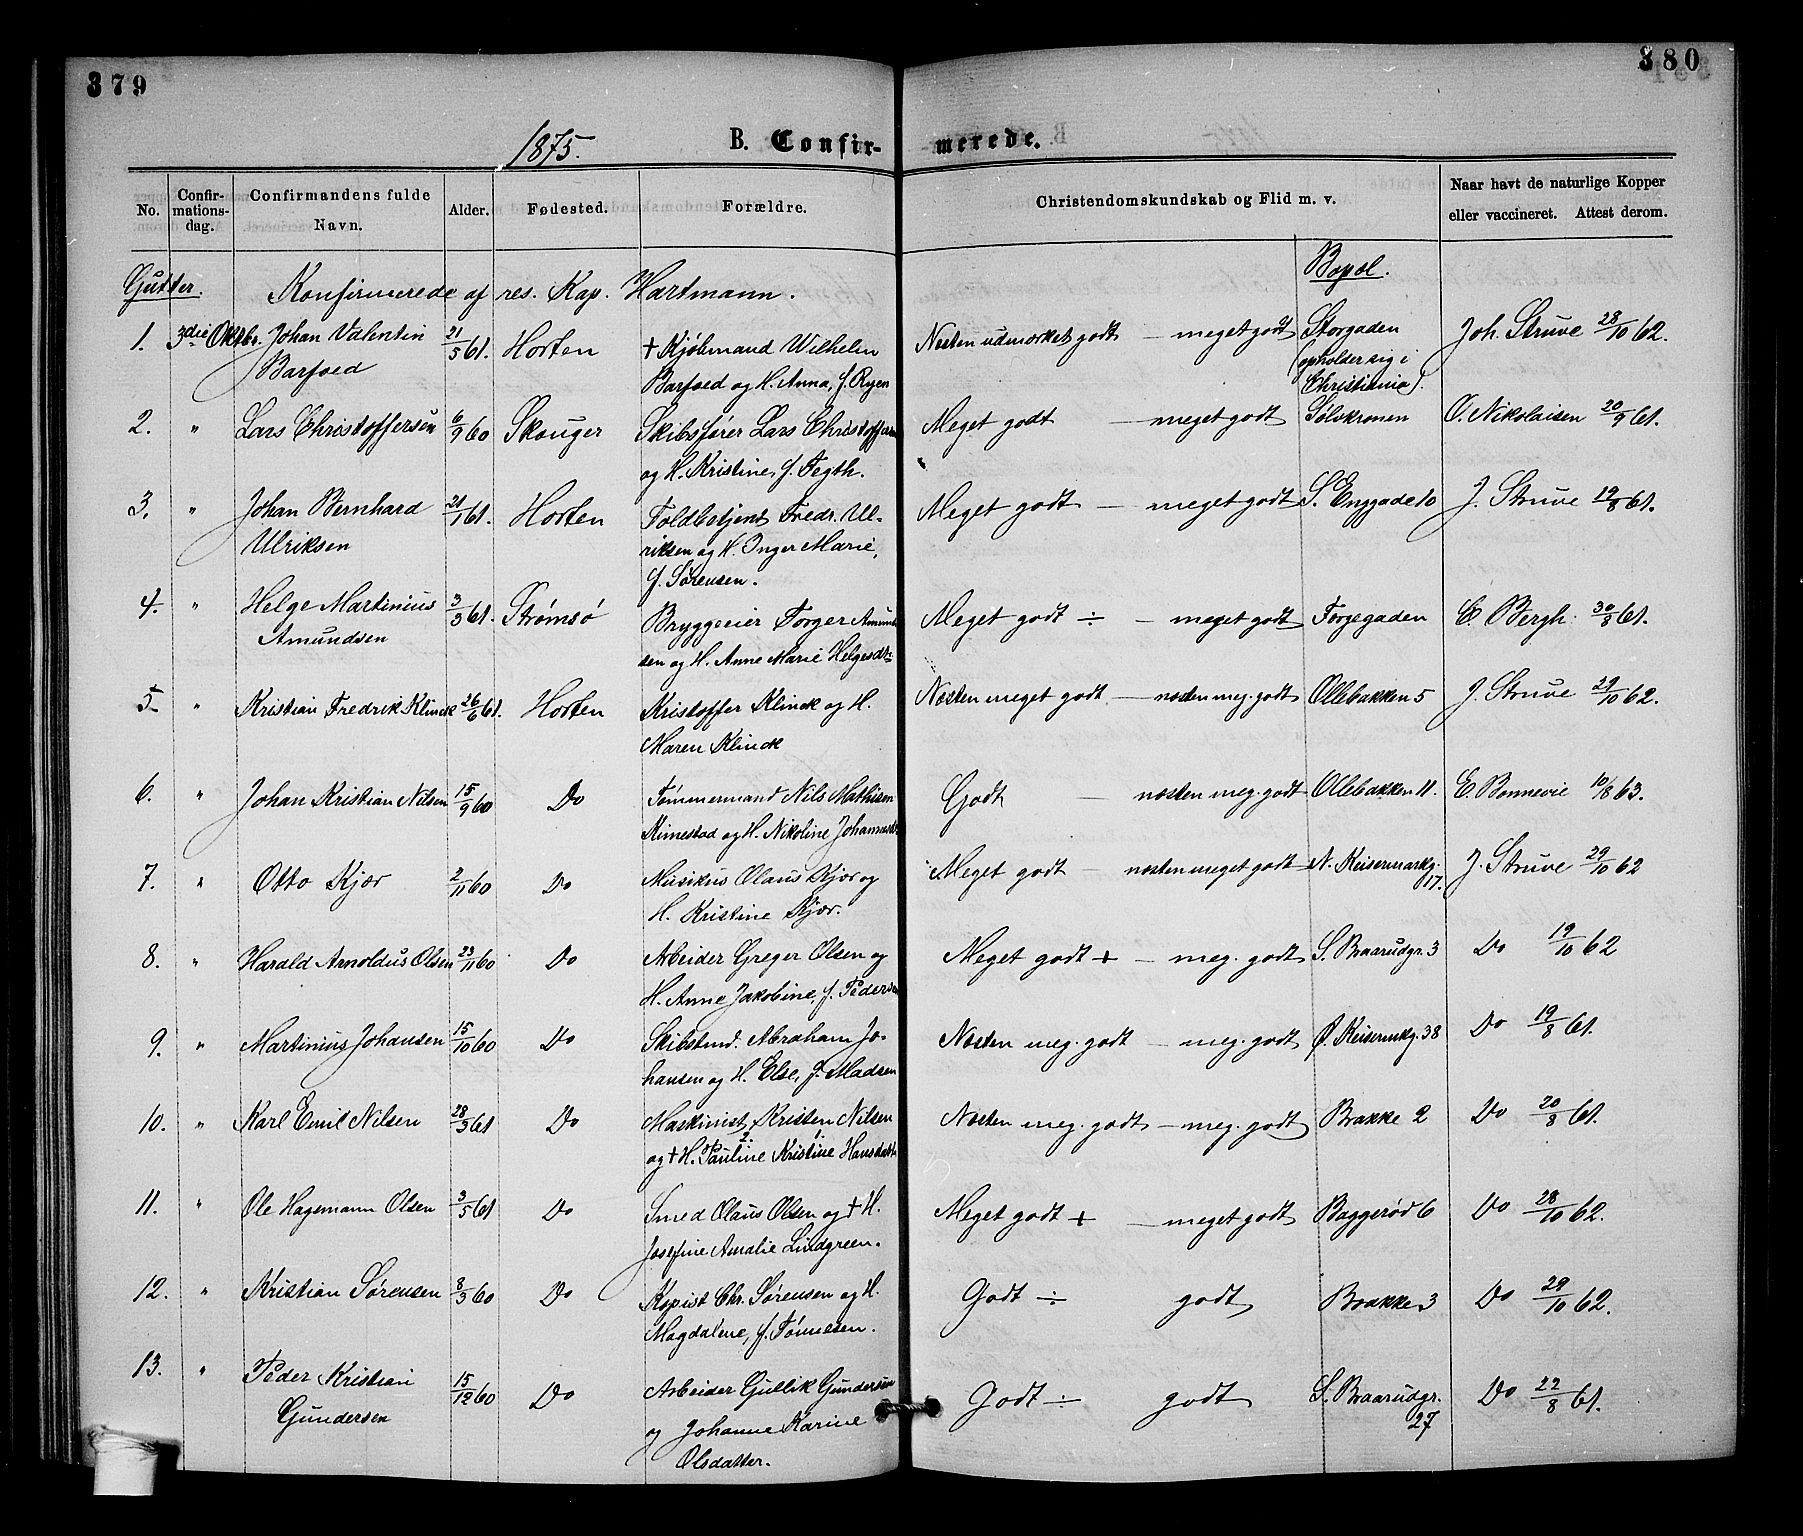 379
380
1875.
B. Confirmerede.
No.
Confirmationsdag.
Confirmandens fulde Navn.
Alder.
Fødested.
Forældre.
Christendomskundskab og Flid m. v.
Naar havt de naturlige Kopper
eller vaccineret. Attest derom.
Gutter. Konfirmerede af res. Kap. Hartmann. Bopæl.
1. 3die Oktbr. Johan Valentin 21/5 61. Horten + Kjøbmand Wilhelm Næsten udmærket godt — meget godt Storgaden Joh. Struve 28/10 62.
Barfoed Barfoed og H. Anna, f. Ryen (opholder sig i
Christiania).
2. " Lars Christoffersen 6/9 60 Skouger Skibsfører Lars Christoffersen Meget godt — meget godt Sølvkronen O. Nikolaisen 20/9 61.
og H. Kristine, f. Fegth.
3. " Johan Bernhard 21/1 61. Horten Toldbetjent Fredr. Ul- Meget godt — meget godt S. Enggade 10 J. Struve 19/8 61.
Ulriksen riksen og H. Inger Marie,
f. Sørensen.
4. " Helge Martinius 3/3 61. Strømsø Bryggeeier Torger Amund- Meget godt ÷ — meget godt Torgegaden C. Bergh. 30/8 61.
Amundsen sen og H. Anne Marie Helgesdtr.
5. " Kristian Fredrik Klinck 26/6 61. Horten Kristoffer Klinck og H. Næsten meget godt — næsten meg. godt Ollebakken 5 J. Struve 29/10 62.
Maren Klinck
6. " Johan Kristian Nilsen 15/9 60 Do Tømmermand Nils Mathisen Godt — næsten meg. godt Ollebakken 11. E. Bonnevie 10/8 63.
Kimestad og H. Nikoline Johannesdtr
7. " Otto Kjær 2/11 60 Do Musikus Olaus Kjær og Meget godt — næsten meget godt N. Keisermarkg. J. Struve 29/10 62
H. Kristine Kjær. 17.
8. " Harald Arnoldus Olsen 23/11 60 Do Arbeider Greger Olsen og Meget godt + — meg. godt S. Braarudgr. 3 Do 19/10 62
H. Anne Jakobine, f. Pedersen
9. " Martinius Johansen 15/10 60 Do Skibstmd. Abraham Jo- Næsten meg. godt — meg. godt Ø. Keisermkg. 38 Do 19/8 61.
hansen og H. Else, f. Madsen
10. " Karl Emil Nilsen 28/3 61 Do Maskinist Kristen Nilsen Næsten meg. godt — meg. godt Brakke 2 Do 20/8 61.
og + H. Pauline Kristine Hansdatter
11. " Ole Hagemann Olsen 3/5 61 Do Smed Olaus Olsen og + H. Meget godt + — meget godt Baggerød 6 Do 28/10 62.
Josefine Amalie Lindgreen.
12. " Kristian Sørensen 8/3 60 Do Kopist Chr. Sørensen og H. Godt ÷ godt Brakke 3 Do 29/10 62.
Magdalene, f. Tønnesen.
13. " Peder Kristian 15/12 60 Do Arbeider Gullik Gundersen Godt ÷ godt S. Braarudgr. Do 22/8 61.
Gundersen og Johanne Karine 27
Olsdatter.